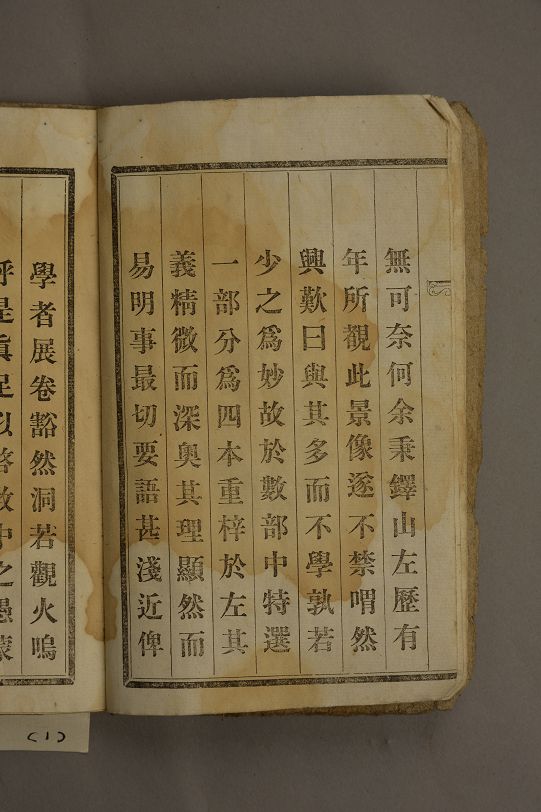 無可奈何余秉鐸山左歷有
年所覩此景像遂不禁喟然
興歎曰與其多而不學孰若
少之爲妙故於數部中特選
一部分爲四本重梓於左其
義精微而深奧其理顯然而
易明事最切要語甚淺近俾
學者展卷豁然洞若觀火嗚
呼是眞足以啓敎中之愚蒙
(1)